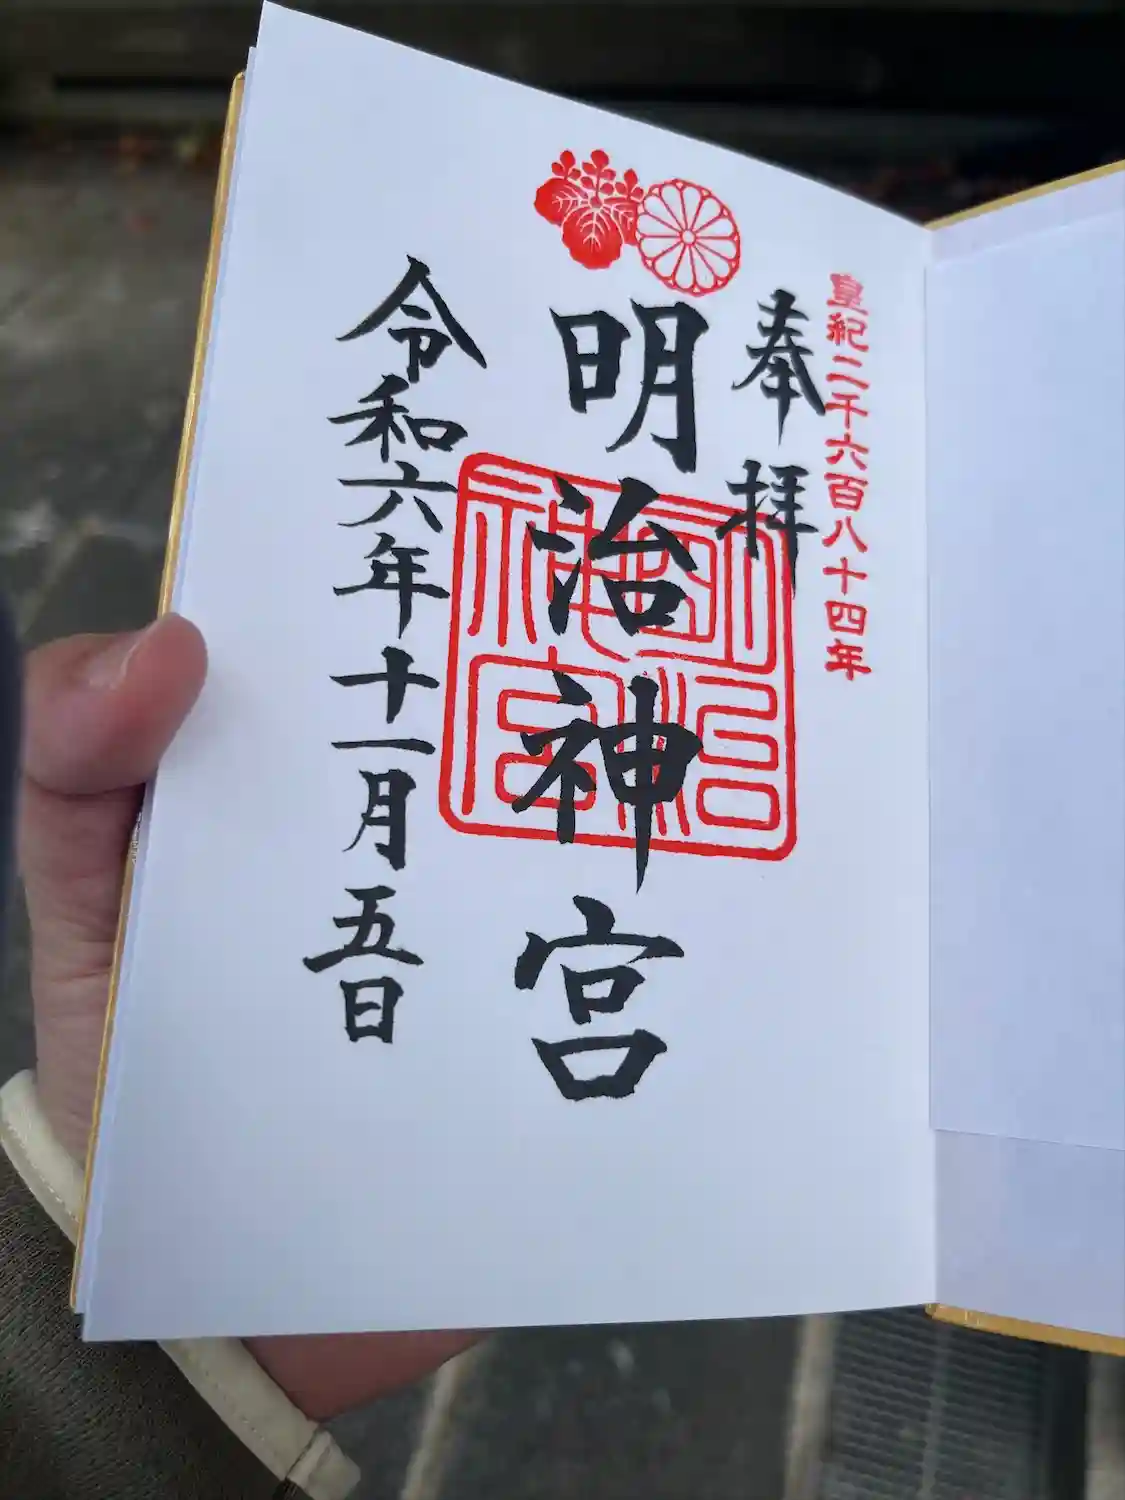 皇紀二千六百八十四年
奉拝
明治神宮
明治神宮
令和六年十一月五日